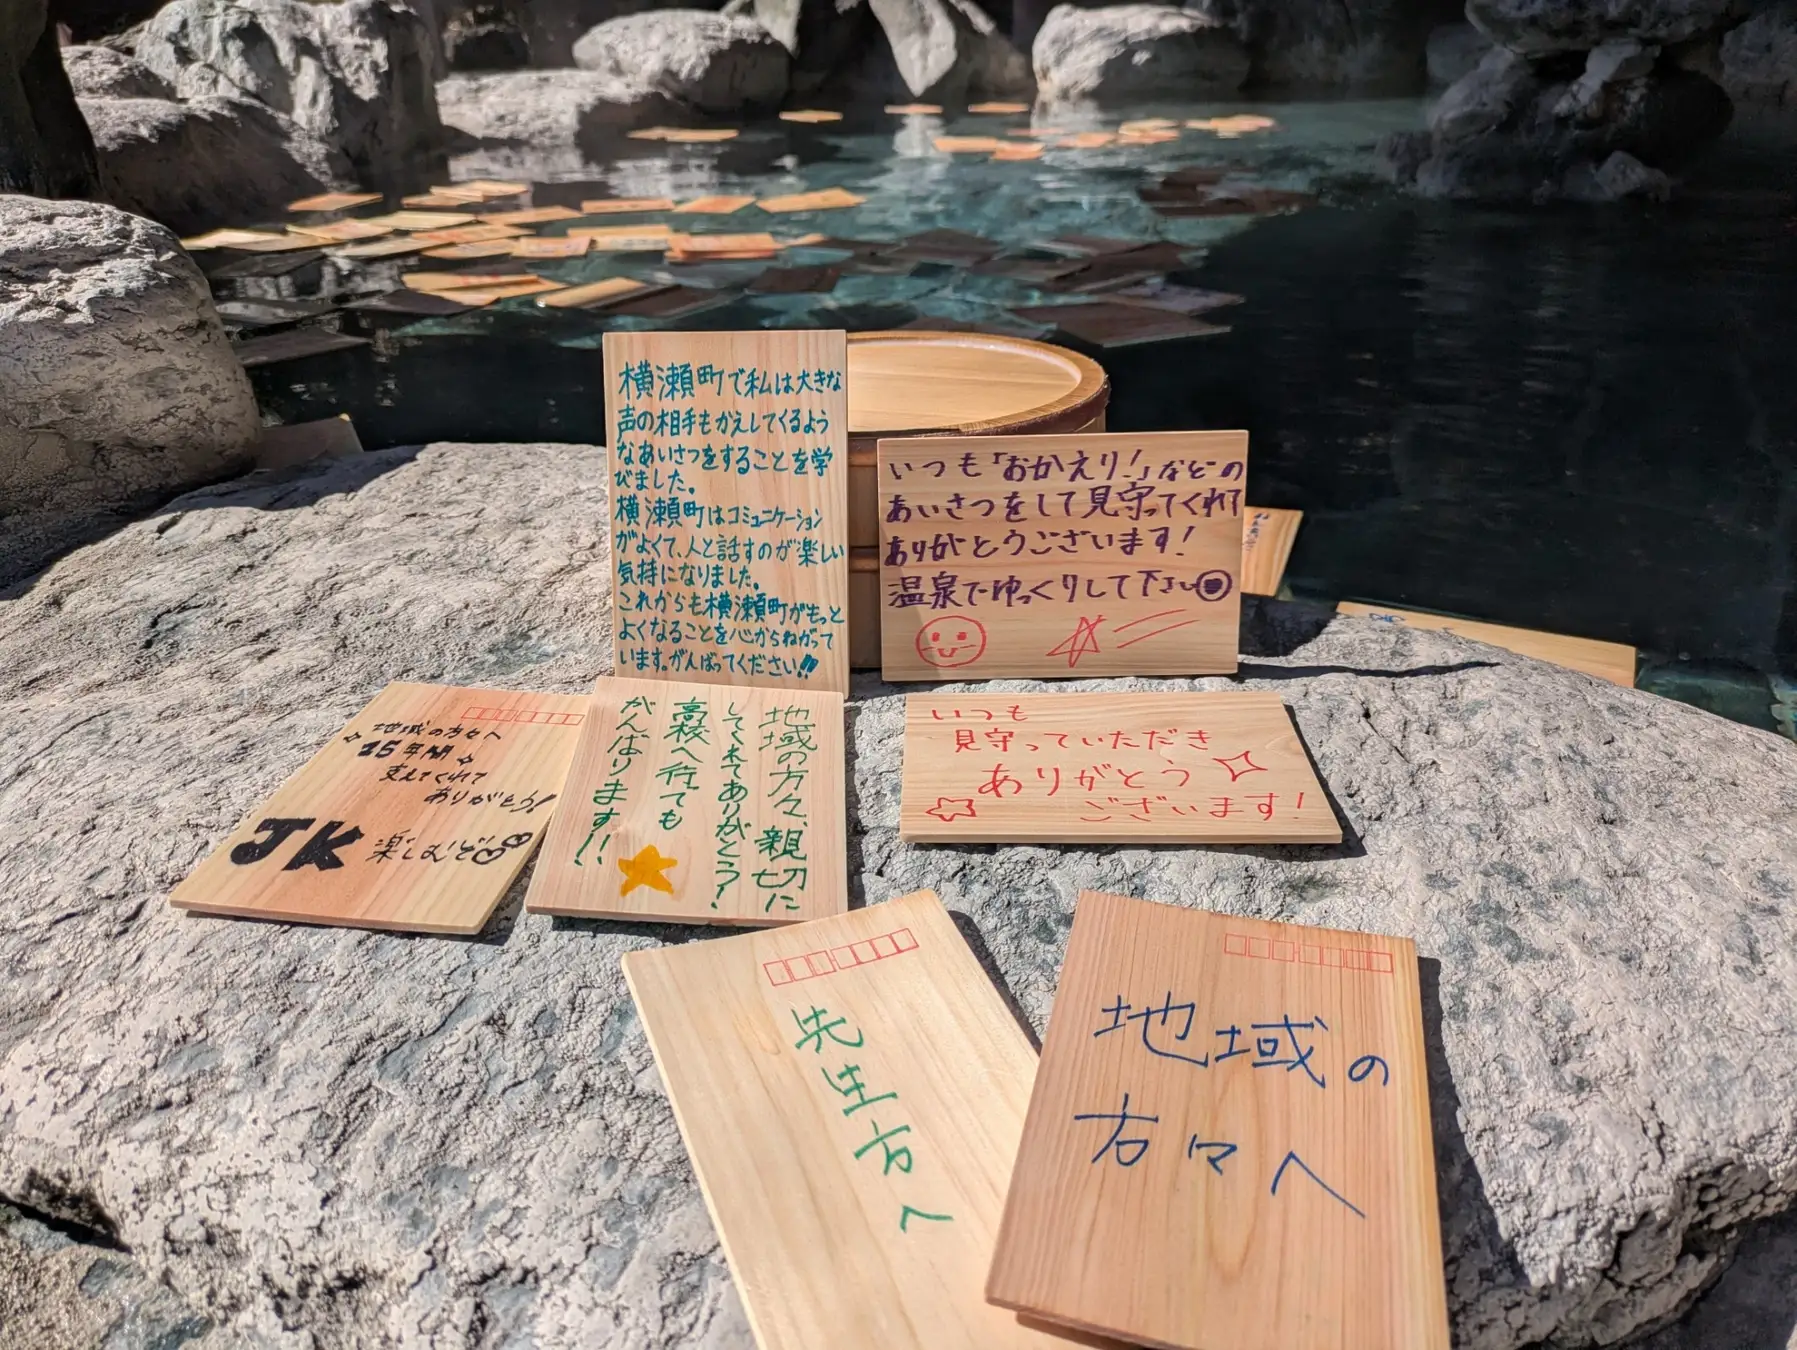 横瀬町で私は大きな
声の相手もかえしてくるよう
なあいさつをすることを学
びました。
横瀬町はコミュニケーション
がよくて、人と話すのが楽しい
気持になりました。
これからも横瀬町がもっと
よくなることを心からねがって
います。がんばってください!!!
いつも「おかえり!」などの
あいさつをして見守ってくれて
ありがとうございます!
温泉でゆっくりして下さい
地域の方々へ
15年間
支えてくれて
ありがとう!
JK 楽しむぞ
地域の方々、親切に
してくれてありがとう!
高校へ行ても
がんばります!!
いつも
見守っていただき
ありがとう
ございます!
先生方へ
地域の
方々へ